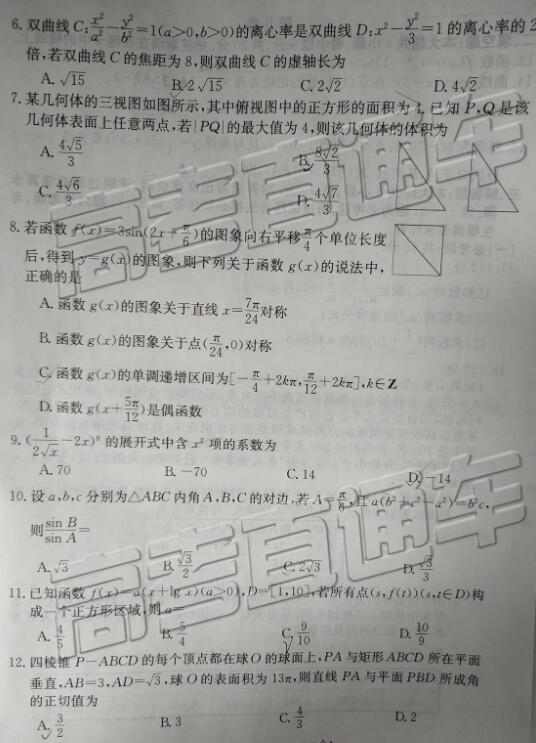 6. 双曲线 C: x²/a² − y²/b² = 1(a>0,b>0)的离心率是双曲线 D: x² − y²/3 = 1 的离心率的 2
倍,若双曲线 C 的焦距为 8,则双曲线 C 的虚轴长为
A. √15 B. 2√15 C. 2√2 D. 4√2
7. 某几何体的三视图如图所示,其中俯视图中的正方形的面积为 4, 已知 P,Q 是该
几何体表面上任意两点,若|PQ|的最大值为 4,则该几何体的体积为
A. 4√5/3 B. 8√2/3
C. 4√6/3 D. 4√7/3
8. 若函数 f(x)=3sin(2x+π/6)的图象向右平移 π/4 个单位长度
后,得到 y=g(x)的图象,则下列关于函数 g(x)的说法中,
正确的是
A. 函数 g(x)的图象关于直线 x=7π/24 对称
B. 函数 g(x)的图象关于点(π/24,0)对称
C. 函数 g(x)的单调递增区间为[−π/4+2kπ,π/12+2kπ],k∈Z
D. 函数 g(x+5π/12)是偶函数
9. (1/(2√x)−2x)⁸ 的展开式中含 x² 项的系数为
A. 70 B. −70 C. 14 D. −14
10. 设 a,b,c 分别为△ABC 内角 A,B,C 的对边,若 A=π/6,且 a(b²+c²−a²)=b²c,
则 sin B/sin A=
A. √3 B. √3/2 C. 2√3 D. √3/3
11. 已知函数 f(x)=a(x+lg x)(a>0),D=[1,10],若所有点(s,f(t))(s,t∈D)构
成一个正方形区域,则 a=
A. 4/5 B. 5/4 C. 9/10 D. 10/9
12. 四棱锥 P−ABCD 的每个顶点都在球 O 的球面上,PA 与矩形 ABCD 所在平面
垂直,AB=3,AD=√3,球 O 的表面积为 13π,则直线 PA 与平面 PBD 所成角
的正切值为
A. 3/2 B. 3 C. 4/3 D. 2
高考直通车
高考直通车